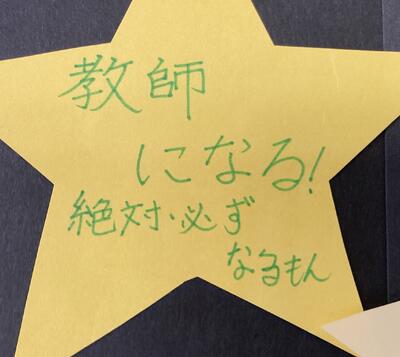 教師
になる!
絶対・必ず
なるもん